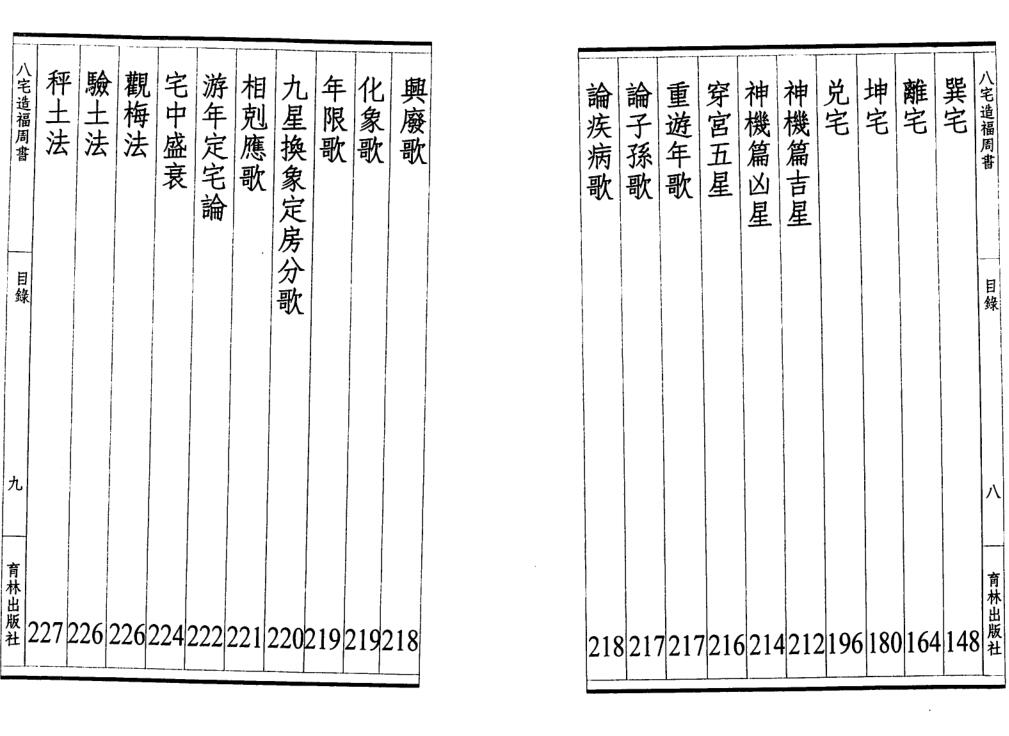 八宅造福周書
目錄
八
育林出版社
巽宅 148
離宅 164
坤宅 180
兌宅 196
神機篇吉星 212
神機篇凶星 214
穿宮五星 216
重遊年歌 217
論子孫歌 217
論疾病歌 218
興廢歌 218
化象歌 219
年限歌 219
九星換象定房分歌 220
相剋應歌 221
游年定宅論 222
宅中盛衰 224
觀梅法 226
驗土法 226
秤土法 227
八宅造福周書
目錄
九
育林出版社